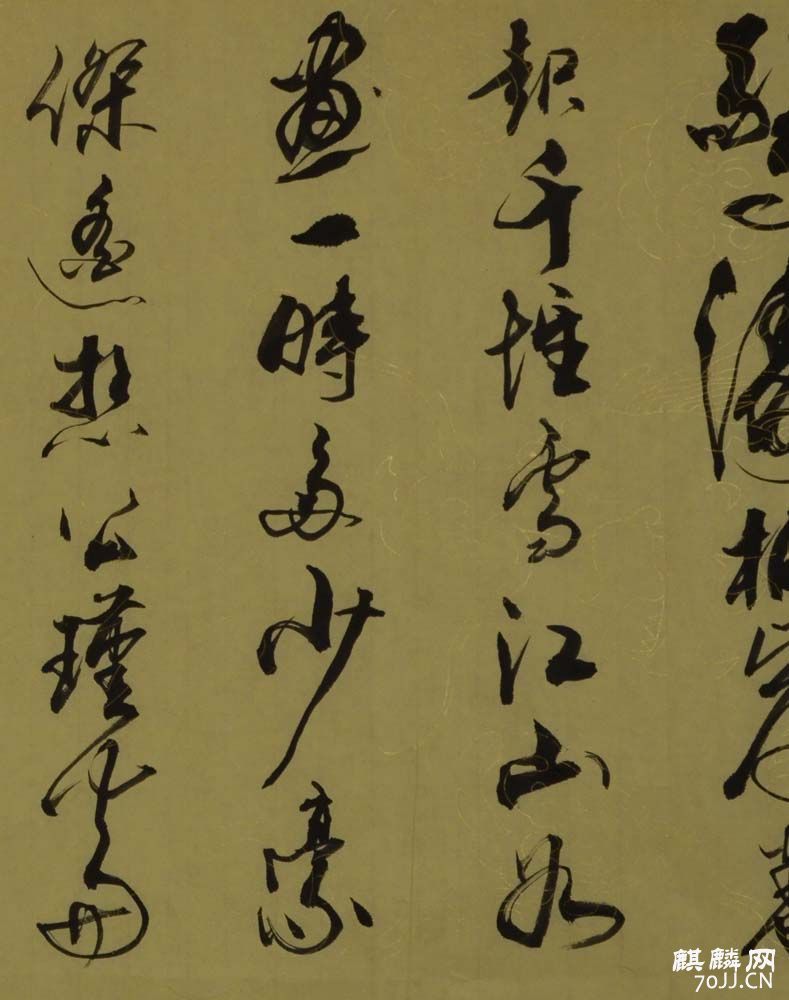 驚濤拍岸卷
起千堆雪江山如
畫一時多少豪
傑遙想公瑾當
麒麟网
70JJ.CN